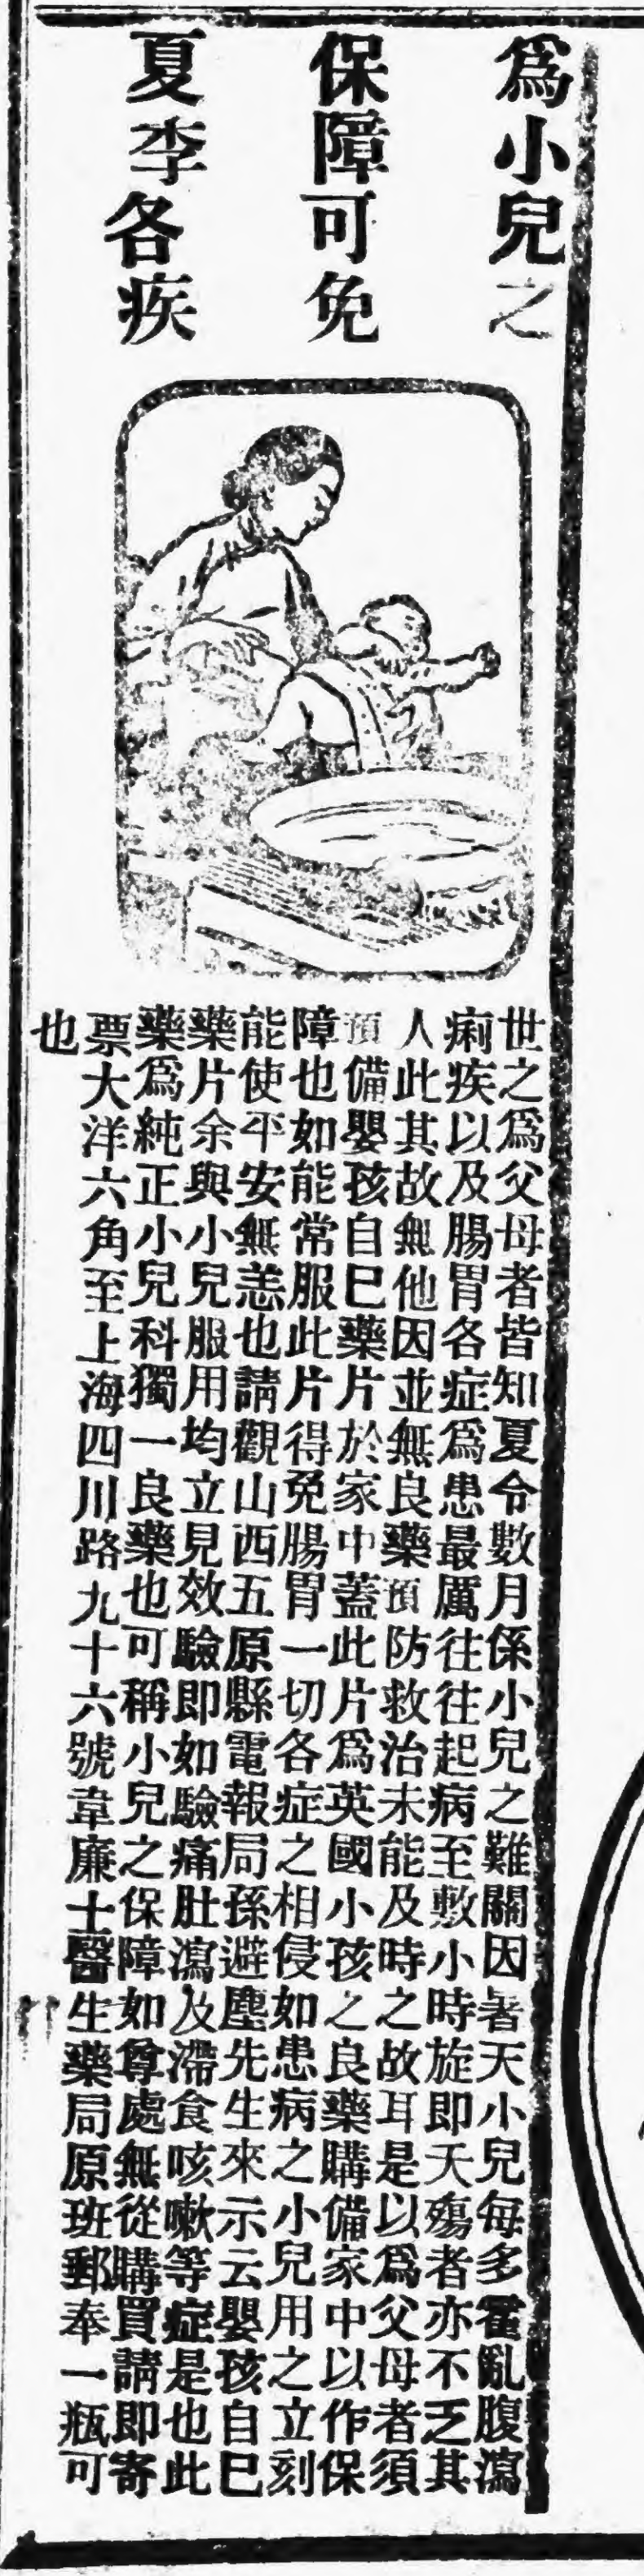 爲小兒之
保障可免
夏季各疾
世之爲父母者皆知夏令數月係小兒之難關因暑天小兒每多霍亂腹瀉
痢疾以及腸胃各症爲患最厲往往起病至數小時旋即夭殤者亦不乏其
人此其故無他因並無良藥預防救治未能及時之故耳是以爲父母者須
預備嬰孩自己藥片於家中蓋此片爲英國小孩之良藥購備家中以作保
障也如能常服此片得免腸胃一切各症之相侵如患病之小兒用之立刻
能使平安無恙也請觀山西五原縣電報局孫避塵先生來示云嬰孩自己
藥片余與小兒服用均立見效驗即如驗痛肚瀉及滯食咳嗽等症是也此
藥爲純正小兒科獨一良藥也可稱小兒之保障如尊處無從購買請即寄
票大洋六角至上海四川路九十六號韋廉士醫生藥局原班郵奉一瓶可
也